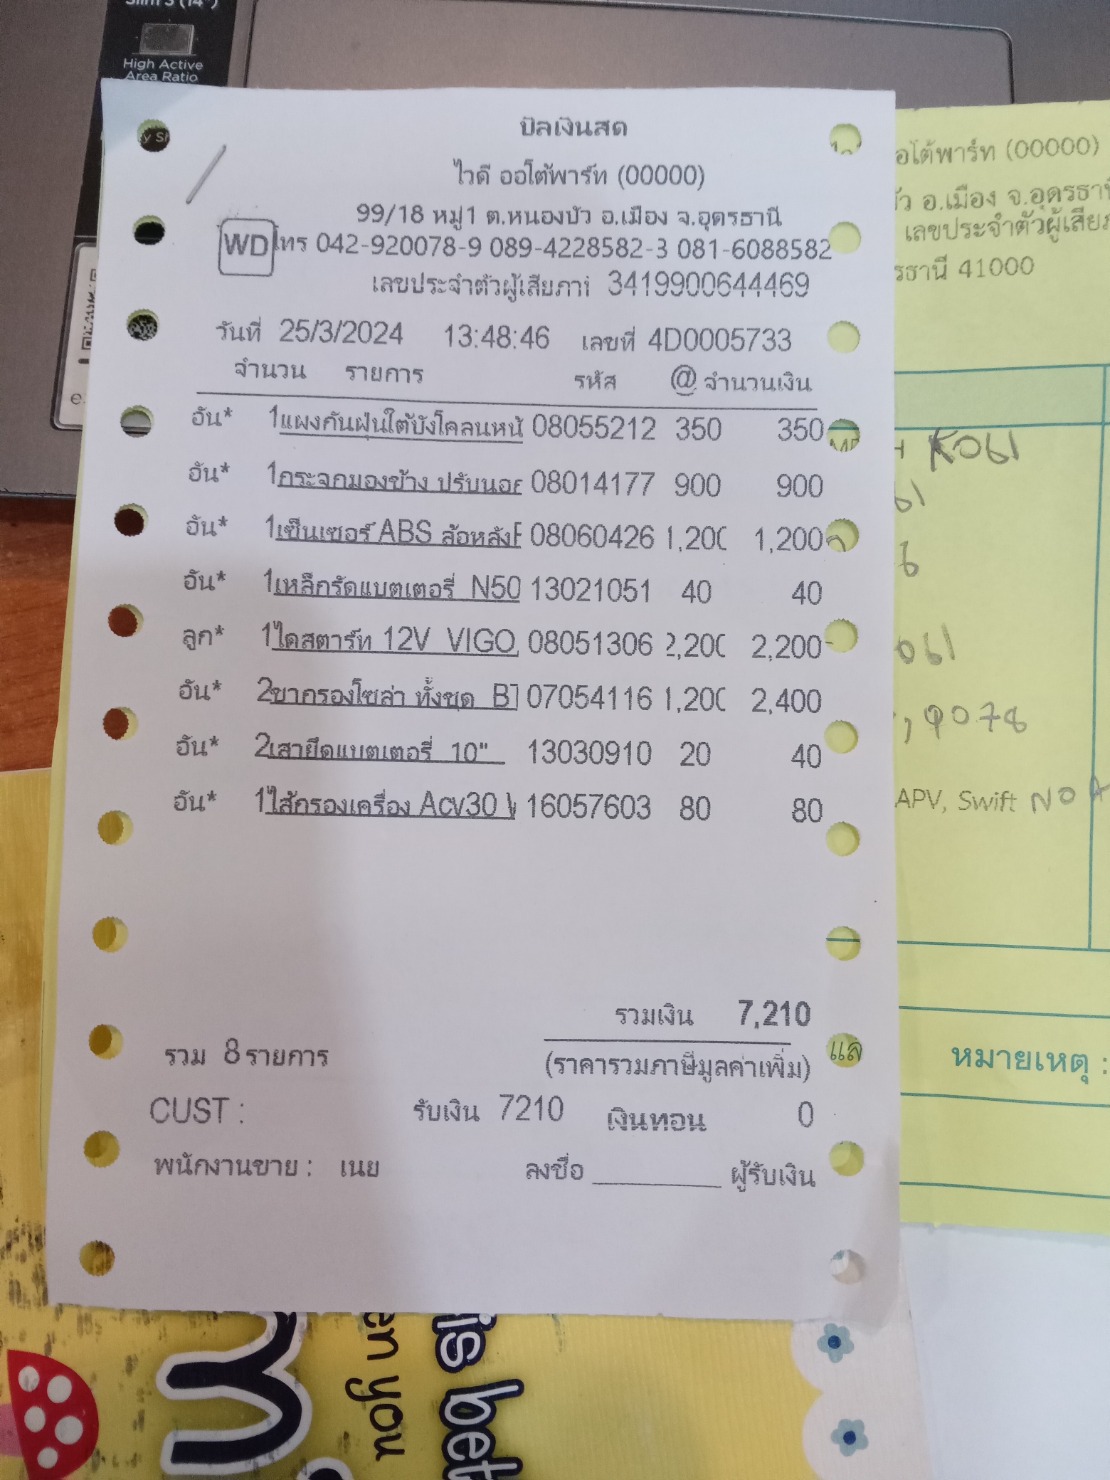 High Active
Area Ratio
บิลเงินสด
ไวดี ออโต้พาร์ท (00000)
99/18 หมู่1 ต.หนองบัว อ.เมือง จ.อุดรธานี
WD โทร 042-920078-9 089-4228582-3 081-6088582
เลขประจำตัวผู้เสียภาษี 3419900644469
วันที่ 25/3/2024 13:48:46 เลขที่ 4D0005733
จำนวน รายการ รหัส @ จำนวนเงิน
อัน* 1 แผงกันฝุ่นใต้บังโคลนหน้ 08055212 350 350
อัน* 1 กระจกมองข้าง ปรับนอก 08014177 900 900
อัน* 1 เซ็นเซอร์ ABS ล้อหลัง 08060426 1,200 1,200
อัน* 1 เหล็กรัดแบตเตอรี่ N50 13021051 40 40
ลูก* 1 ไดสตาร์ท 12V VIGO 08051306 2,200 2,200
อัน* 2 ขากรองโซล่า ทั้งชุด 07054116 1,200 2,400
อัน* 2 เสายึดแบตเตอรี่ 10" 13030910 20 40
อัน* 1 ไส้กรองเครื่อง Acv30 16057603 80 80
รวมเงิน 7,210
รวม 8 รายการ (ราคารวมภาษีมูลค่าเพิ่ม)
CUST : รับเงิน 7210 เงินทอน 0
พนักงานขาย : เนย ลงชื่อ ________ ผู้รับเงิน
อโต้พาร์ท (00000)
อ.เมือง จ.อุดรธานี
เลขประจำตัวผู้เสีย
รธานี 41000
K061
061
9078
APV, Swift
หมายเหตุ :
en you
is bet